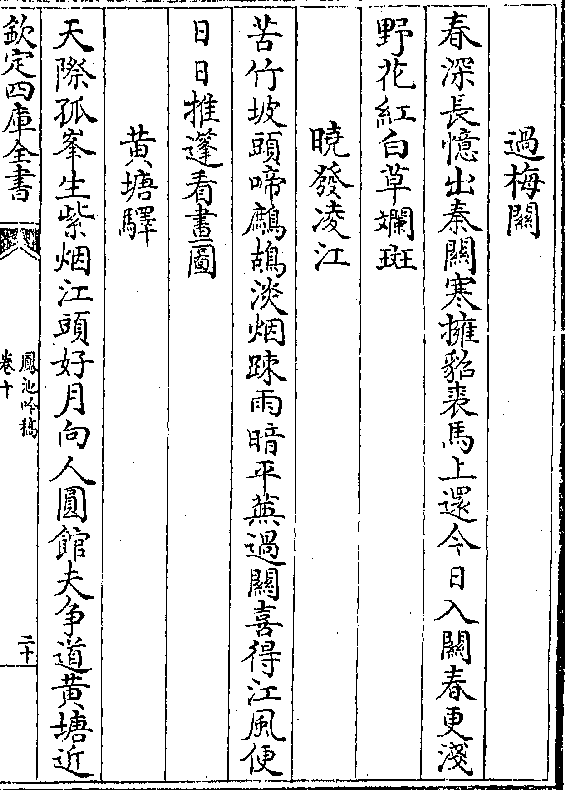 過梅關
春深長憶出秦關寒擁貂裘馬上還今日入關春更淺
野花紅白草斕斑
曉發凌江
苦竹坡頭啼鷓鴣淡烟踈雨暗平蕪過關喜得江風便
日日推蓬看畫圖
黄塘驛
天際孤峯生紫烟江頭好月向人圓館夫争道黄塘近
欽定四庫全書
鳳池吟稿
卷十
二十